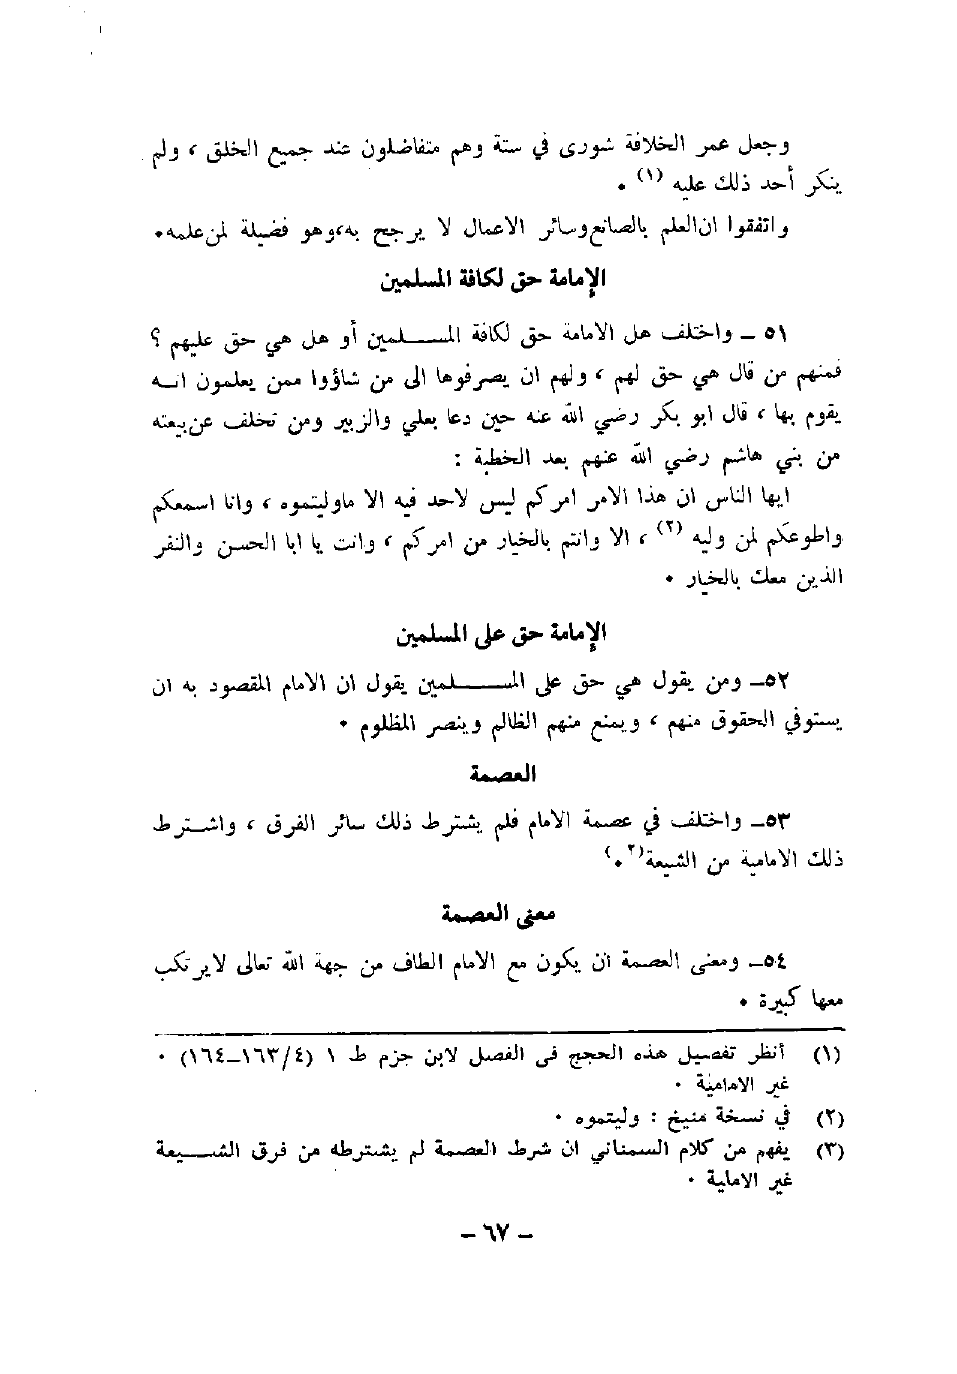 وجعل عمر الخلافة شورى في ستة وهم متفاضلون عند جميع الخلق ، ولم
ينكر أحد ذلك عليه (١) ٠
واتفقوا ان العلم بالصانع وسائر الاعمال لا يرجح به ، وهو فضيلة لمن علمه ٠
الإمامة حق لكافة المسلمين
٥١ ـ واختلف هل الامامة حق لكافة المسلمين أو هل هي حق عليهم ؟
فمنهم من قال هي حق لهم ، ولهم ان يصرفوها الى من شاؤوا ممن يعلمون انه
يقوم بها ، قال ابو بكر رضي الله عنه حين دعا بعلي والزبير ومن تخلف عن بيعته
من بني هاشم رضي الله عنهم بعد الخطبة :
ايها الناس ان هذا الامر امركم ليس لاحد فيه الا ماوليتموه ، وانا اسمعكم
واطوعكم لمن وليه (٢) ، الا وانتم بالخيار من امركم ، وانت يا ابا الحسن والنفر
الذين معك بالخيار ٠
الإمامة حق على المسلمين
٥٢ـ ومن يقول هي حق على المسلمين يقول ان الامام المقصود به ان
يستوفي الحقوق منهم ، ويمنع منهم الظالم وينصر المظلوم ٠
العصمة
٥٣ـ واختلف في عصمة الامام فلم يشترط ذلك سائر الفرق ، واشترط
ذلك الامامية من الشيعة(٣) ٠
معنى العصمة
٥٤ـ ومعنى العصمة ان يكون مع الامام الطاف من جهة الله تعالى لايرتكب
معها كبيرة ٠
(١) أنظر تفصيل هذه الحجج فى الفصل لابن حزم ط ١ (٤/١٦٣ـ١٦٤) ٠
غير الامامية ٠
(٢) في نسخة منيخ : وليتموه ٠
(٣) يفهم من كلام السمناني ان شرط العصمة لم يشترطه من فرق الشيعة
غير الاملية ٠
ـ ٦٧ ـ